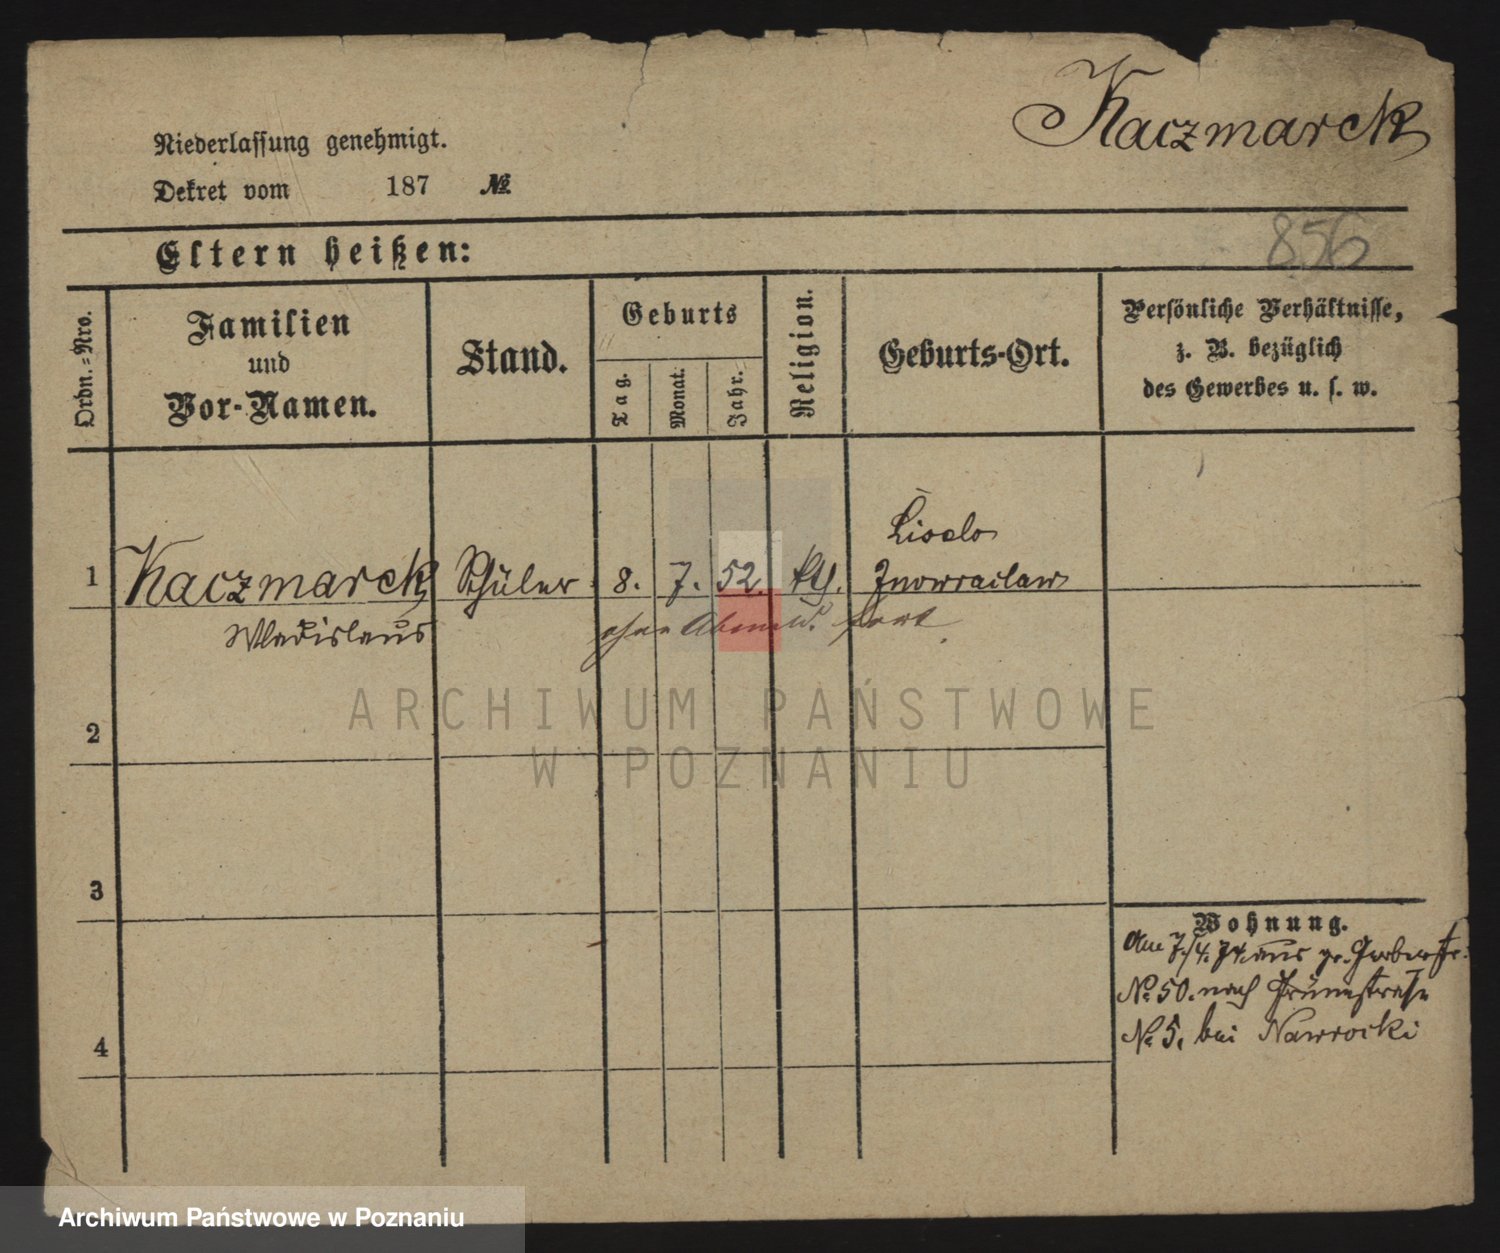 Kaczmarek
Niederlassung genehmigt.
Dekret vom 187 №
856
Eltern heißen:
Ordn.-Nro.
Familien
und
Vor-Namen.
Stand.
Geburts
Tag.
Monat.
Jahr.
Religion.
Geburts-Ort.
Persönliche Verhältnisse,
z. B. bezüglich
des Gewerbes u. s. w.
1 Kaczmarek Schüler 8. 7. 52. kth. Inowraclaw
Wladislaus
ohne Abmeld. fort
2
3
4
Wohnung.
Am 7./4. 74. aus gr. Gerberstr.
№ 50. nach Grünestraße
№ 5. bei Nawrocki
ARCHIWUM PAŃSTWOWE
W POZNANIU
Archiwum Państwowe w Poznaniu